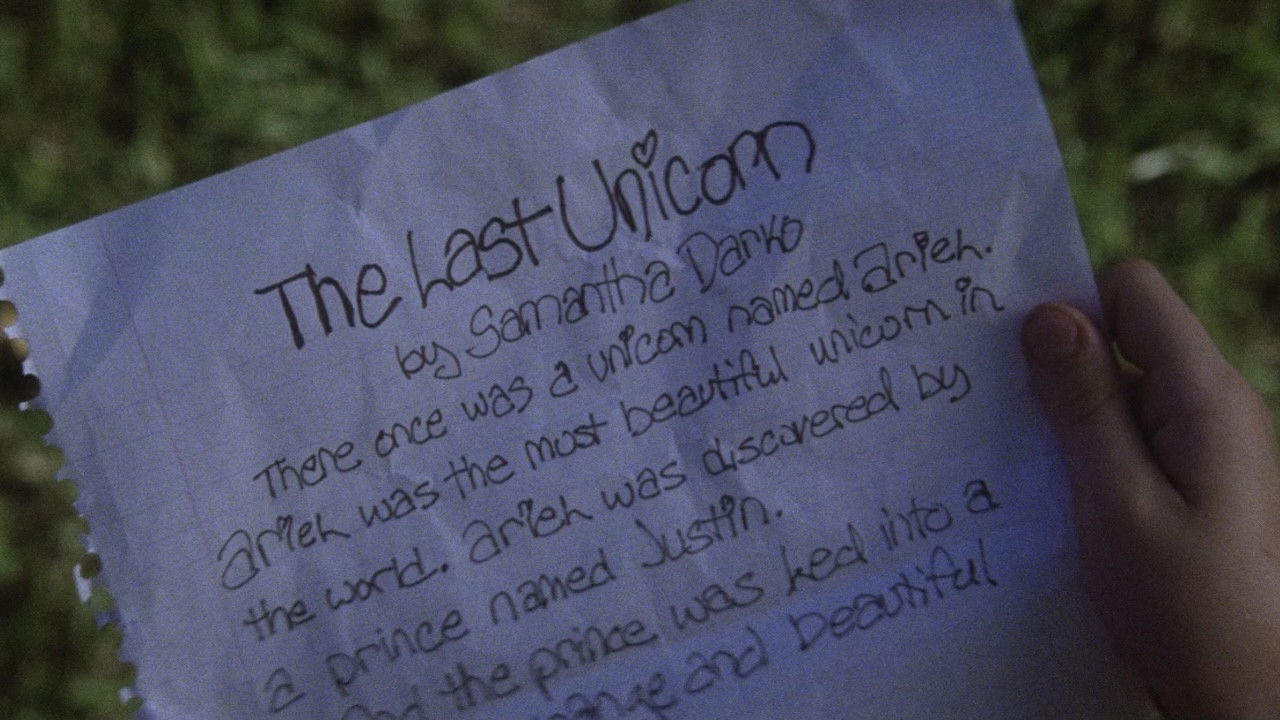 The Last Unicorn
by Samantha Darko
There once was a unicorn named Arieh.
Arieh was the most beautiful unicorn in
the world. Arieh was discovered by
a prince named Justin.
And the prince was led into a
and beautiful